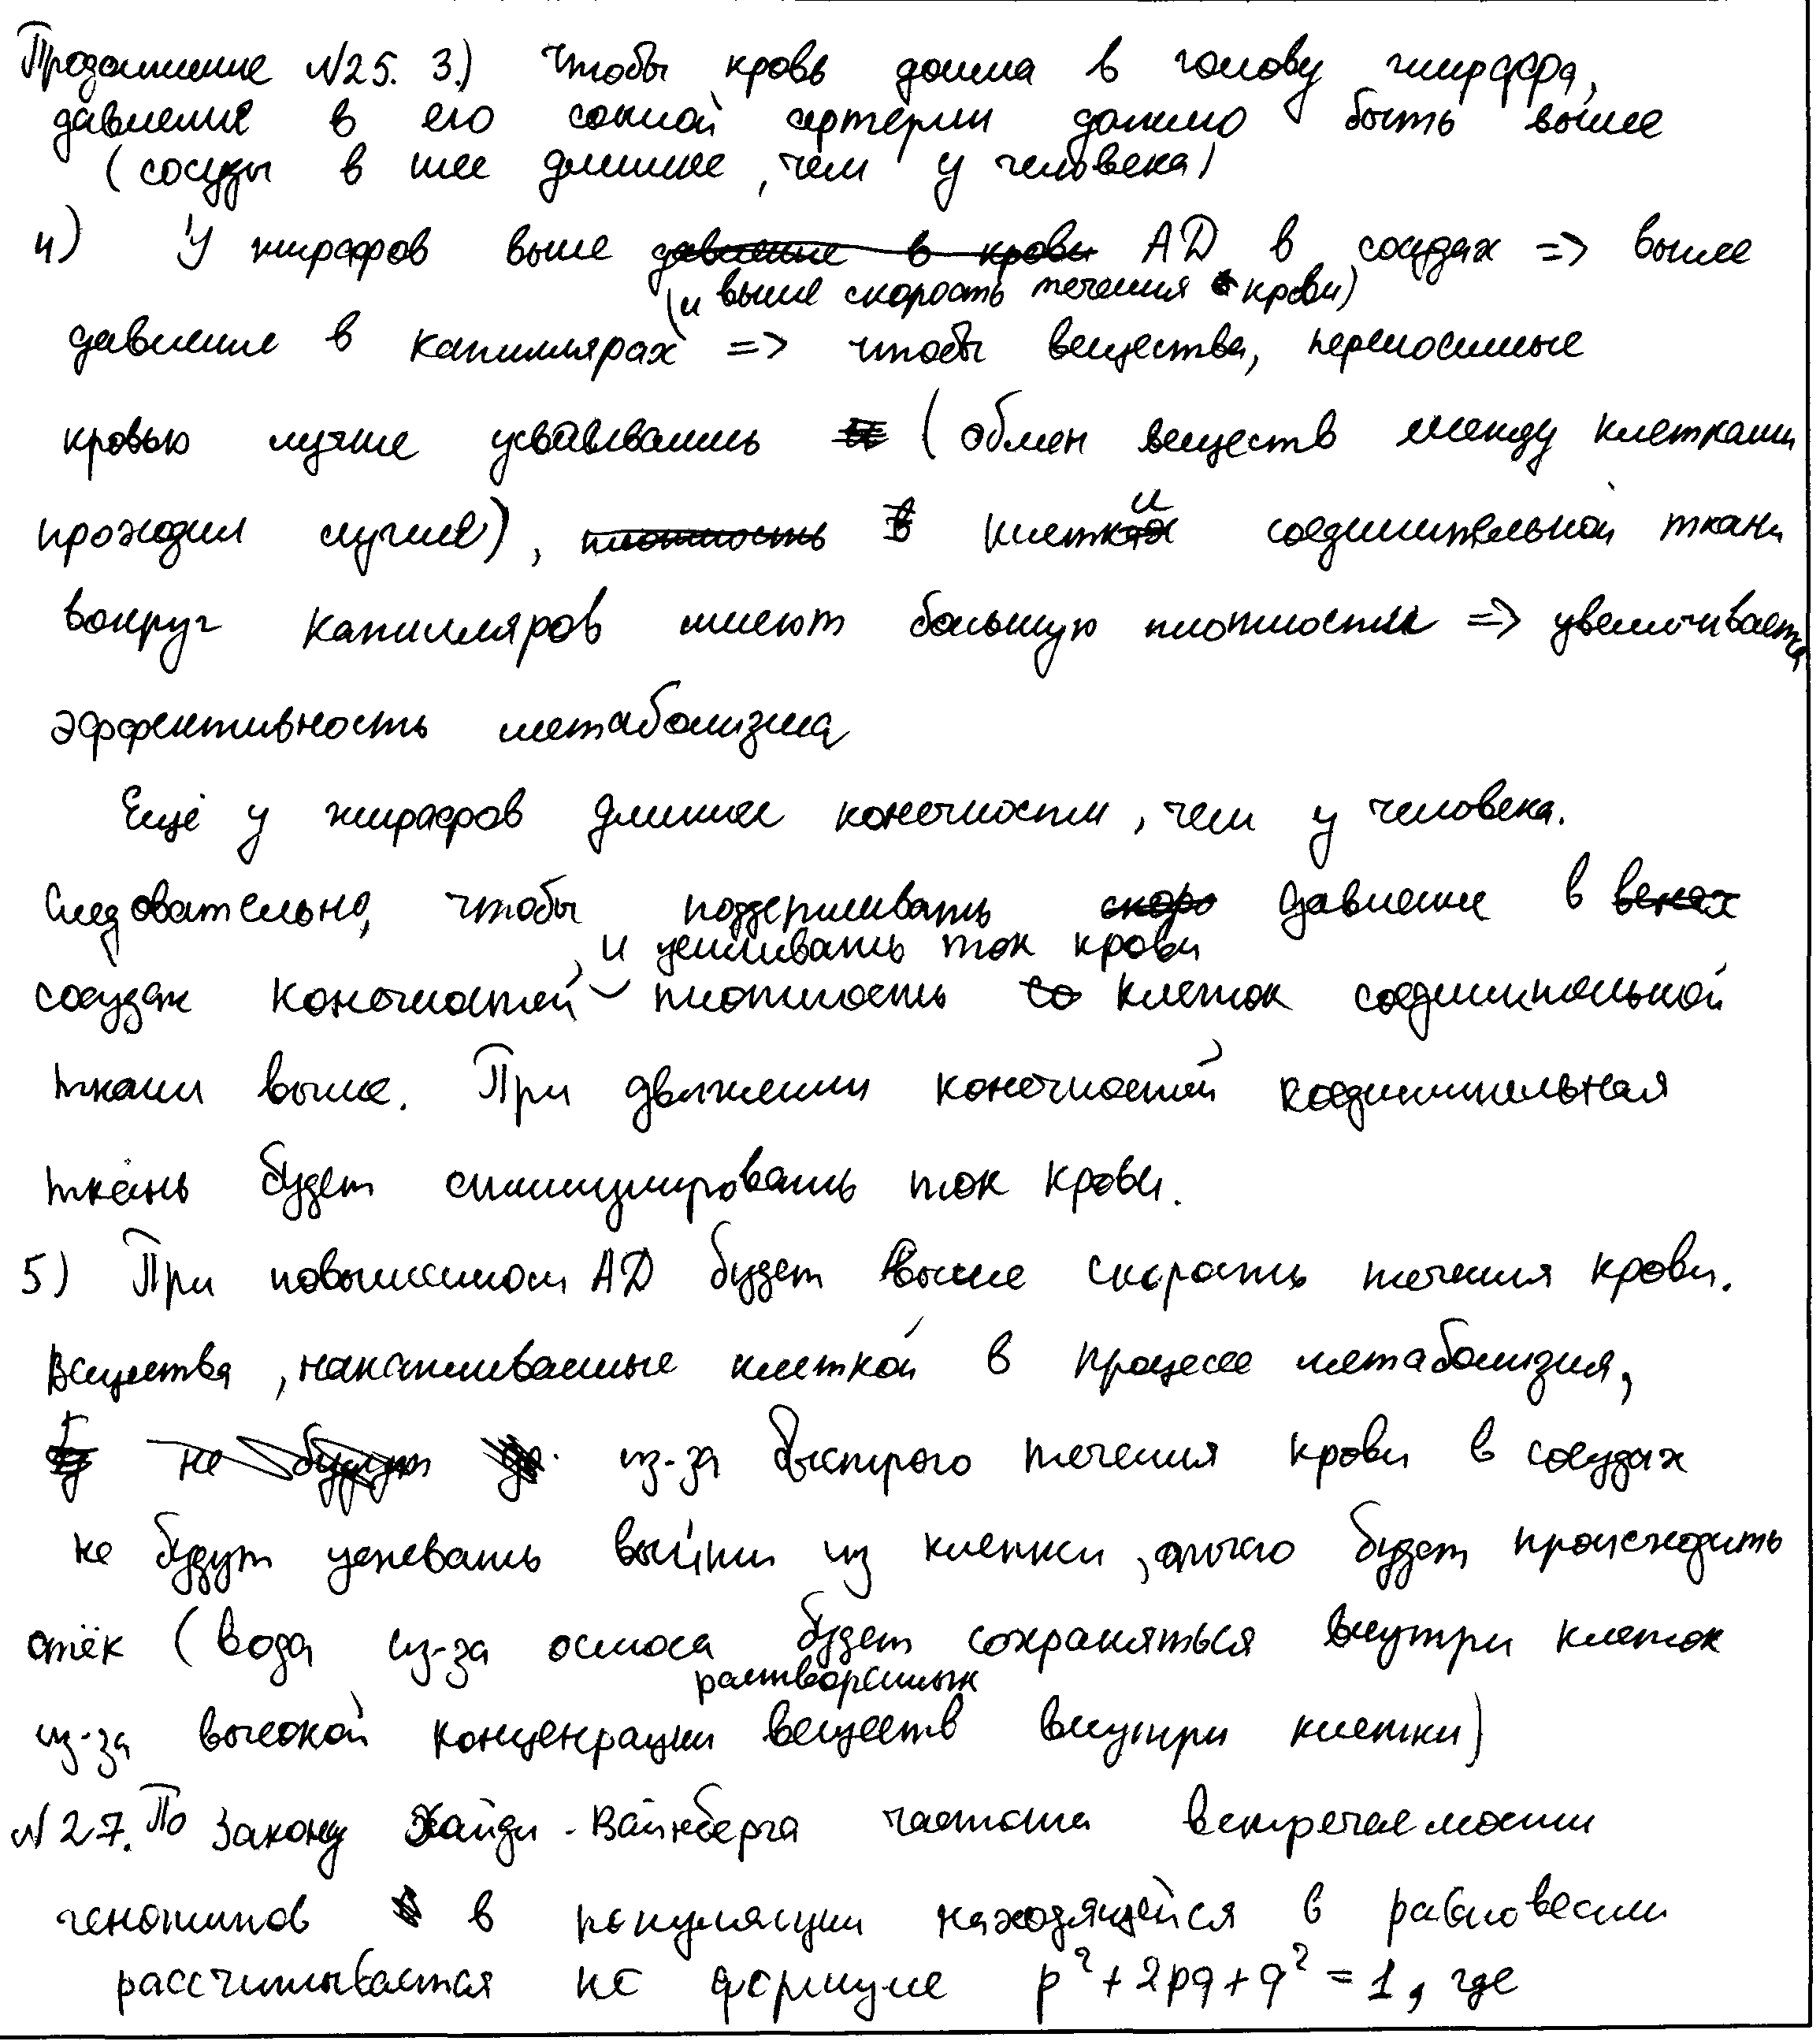 Продолжение №25. 3.) Чтобы кровь дошла в голову жирафа,
давление в его сонной артерии должно быть выше
(сосуды в шее длиннее, чем у человека)
4) У жирафов выше давление в крови АД в сосудах => выше
(и выше скорость течения крови)
давление в капиллярах => чтобы вещества, переносимые
кровью лучше усваивались (обмен веществ между клетками
проходил лучше), плотность в клетки соединительной ткани
вокруг капилляров имеют большую плотность => увеличивается
эффективность метаболизма
Ещё у жирафов длиннее конечности, чем у человека.
Следовательно, чтобы поддерживать скоро давление в венах
и усиливать ток крови
сосудах конечностей плотность со клеток соединительной
ткани выше. При движении конечностей соединительная
ткань будет стимулировать ток крови.
5) При повышенном АД будет выше скорость течения крови.
Вещества, накапливаемые клеткой в процессе метаболизма,
не будут из-за быстрого течения крови в сосудах
не будут успевать выйти из клетки, отчего будет происходить
отёк (вода из-за осмоса будет сохраняться внутри клеток
растворённых
из-за высокой концентрации веществ внутри клетки)
№27. По закону Хайди-Вайнберга частота встречаемости
генотипов в популяции находящейся в равновесии
рассчитывается по формуле p²+2pq+q²=1, где